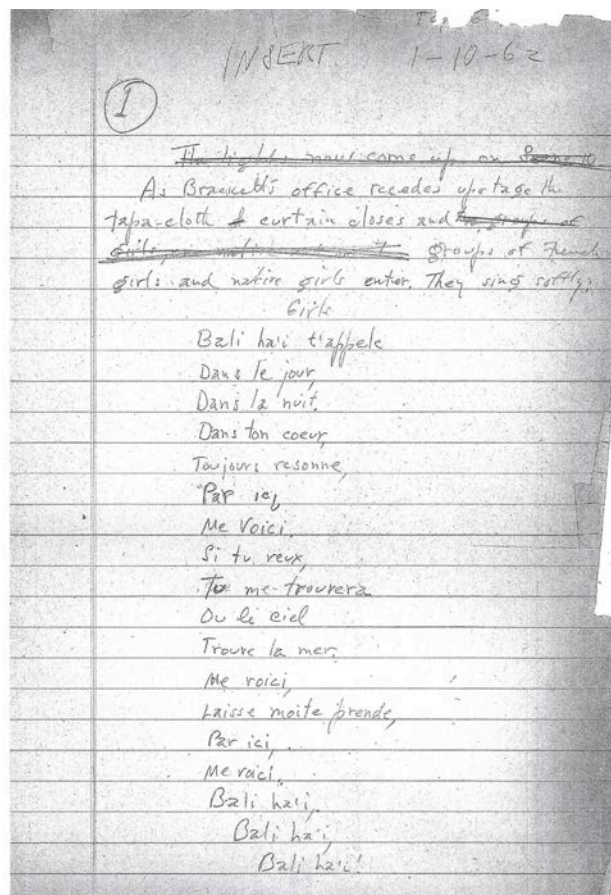 INSERT. 1-10-62
1
The lights now come up on Scene 10
As Brackett's office recedes upstage the
tapa-cloth curtain closes and the groups of
girls, groups of French
girls and native girls enter. They sing softly:
Girls
Bali ha'i t'appele
Dans le jour,
Dans la nuit.
Dans ton coeur,
Toujours resonne,
Par ici,
Me Voici.
Si tu veux,
Tu me trouvera
Ou le ciel
Trouve la mer.
Me voici,
Laisse moite prende,
Par ici,
Me voici,
Bali ha'i,
Bali ha'i,
Bali ha'i!